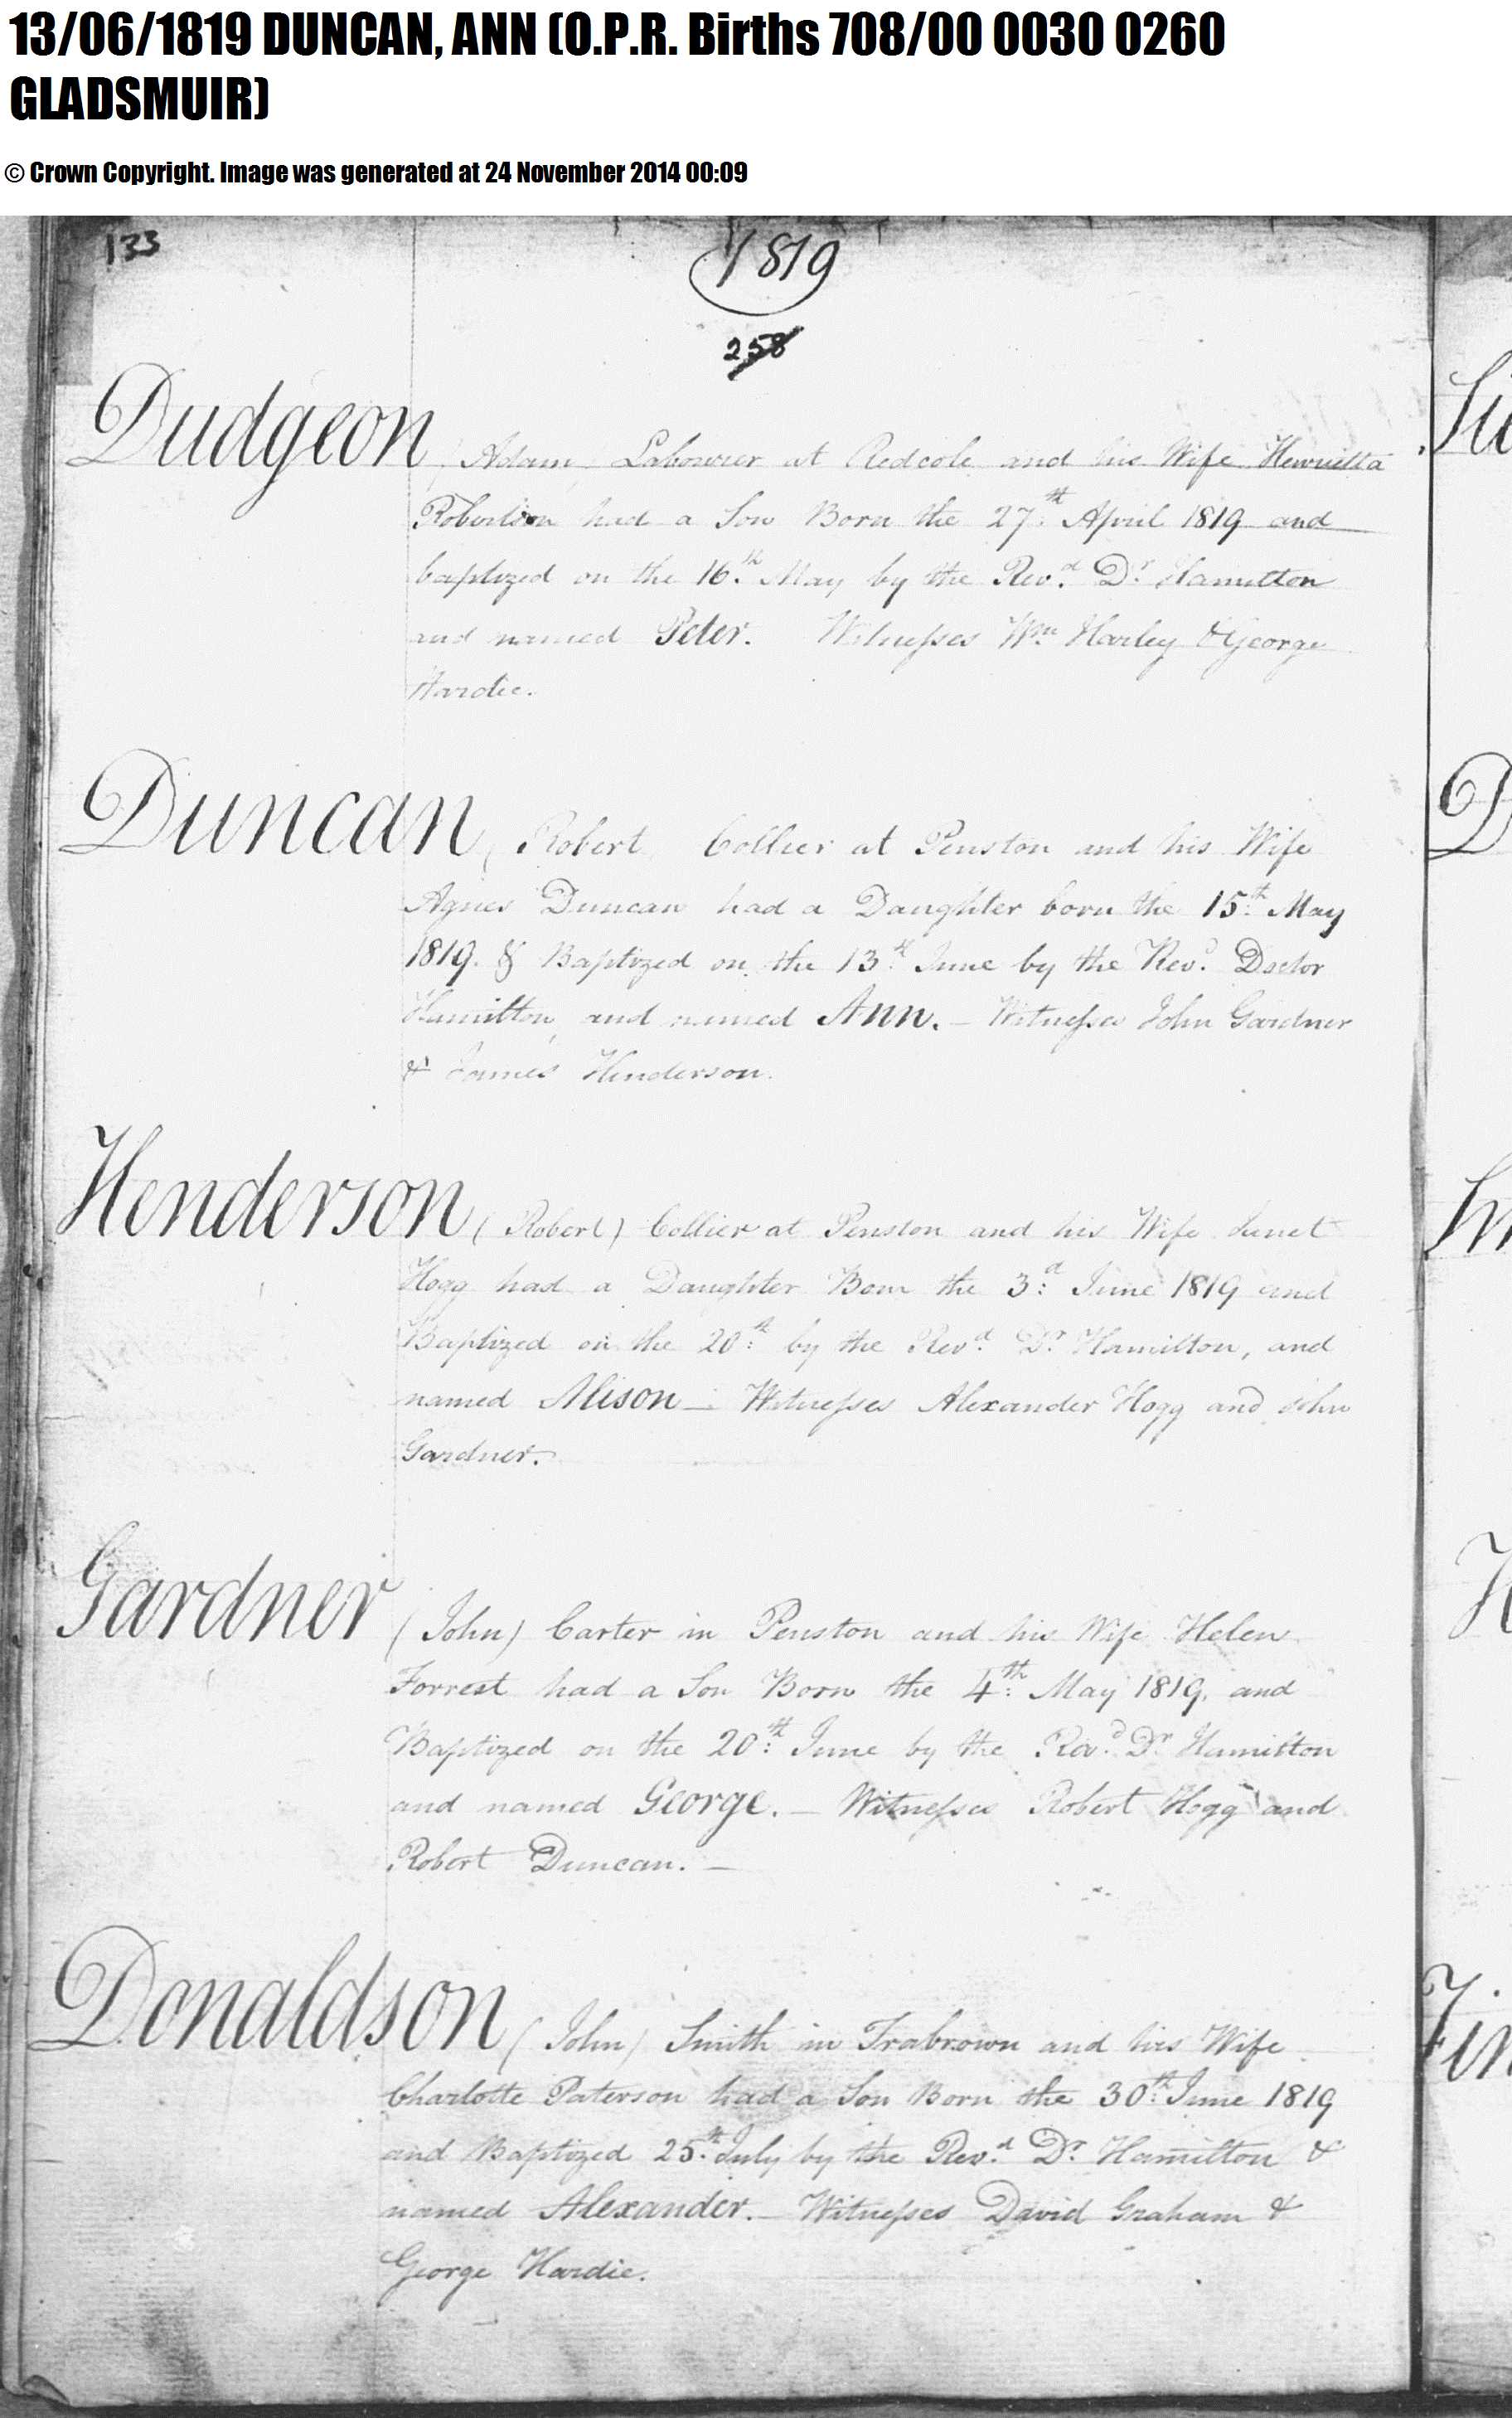 13/06/1819 DUNCAN, ANN (O.P.R. Births 708/00 0030 0260
GLADSMUIR)
© Crown Copyright. Image was generated at 24 November 2014 00:09
133
1819
258
Dudgeon (Adam) Labourer at Redcole and his Wife Henrietta
Robertson had a Son Born the 27th April 1819 and
baptized on the 16th May by the Revd Dr Hamilton
and named Peter. Witnesses Wm Harley & George
Hardie.
Duncan (Robert) Collier at Penston and his Wife
Agnes Duncan had a Daughter born the 15th May
1819. & Baptized on the 13th June by the Revd Doctor
Hamilton, and named Ann. – Witnesses John Gardner
& James Henderson.
Henderson (Robert) Collier at Penston and his Wife Janet
Hogg had a Daughter Born the 3d June 1819 and
Baptized on the 20th by the Revd Dr Hamilton, and
named Alison – Witnesses Alexander Hogg and John
Gardner.
Gardner (John) Carter in Penston and his Wife Helen
Forrest had a Son Born the 4th May 1819, and
Baptized on the 20th June by the Revd Dr Hamilton
and named George. – Witnesses Robert Hogg and
Robert Duncan. –
Donaldson (John) Smith in Trabrown and his Wife
Charlotte Paterson had a Son Born the 30th June 1819
and Baptized 25th July by the Revd Dr Hamilton &
named Alexander. – Witnesses David Graham &
George Hardie.